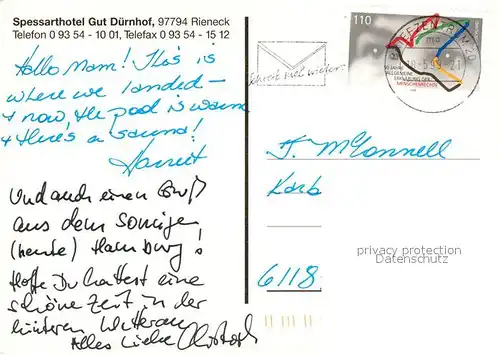 Spessarthotel Gut Dürnhof, 97794 Rieneck
Telefon 0 93 54 - 10 01, Telefax 0 93 54 - 15 12
Hallo Mam! This is
where we landed -
+ now the pool is warm
+ there's a sauna!
Harriet
Und auch einen Gruß
aus dem sonnigen
(heute) Hamburg!
Hoffe Du hattest eine
schöne Zeit in der
hinteren Wetterau
Alles Liebe Christoph
110
Schreib mal wieder
50 JAHRE
ALLGEMEINE
ERKLÄRUNG DER
MENSCHENRECHTE
J. McConnell
Karb
6118
privacy protection
Datenschutz